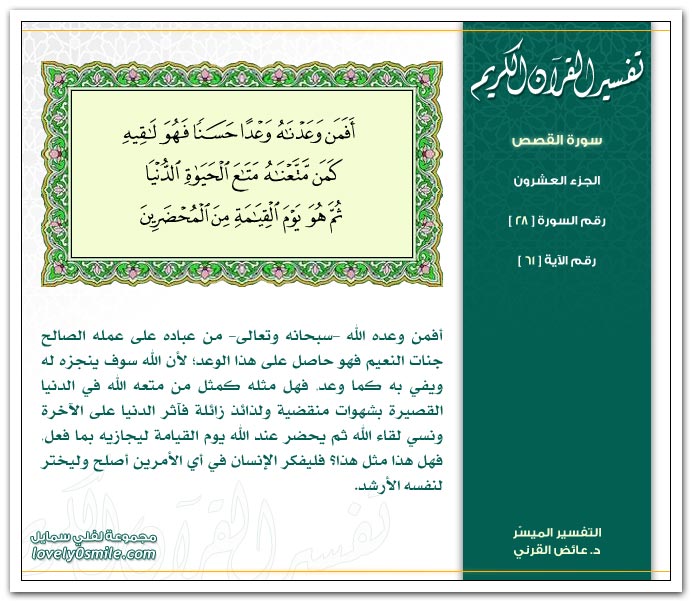 تفسير القرآن الكريم
سورة القصص
الجزء العشرون
رقم السورة [ ٢٨ ]
رقم الآية [ ٦١ ]
أَفَمَن وَعَدْنَٰهُ وَعْدًا حَسَنًا فَهُوَ لَٰقِيهِ
كَمَن مَّتَّعْنَٰهُ مَتَٰعَ ٱلْحَيَوٰةِ ٱلدُّنْيَا
ثُمَّ هُوَ يَوْمَ ٱلْقِيَٰمَةِ مِنَ ٱلْمُحْضَرِينَ
أفمن وعده الله -سبحانه وتعالى- من عباده على عمله الصالح
جنات النعيم فهو حاصل على هذا الوعد؛ لأن الله سوف ينجزه له
ويفي به كما وعد، فهل مثله كمثل من متعه الله في الدنيا
القصيرة بشهوات منقضية ولذائذ زائلة فآثر الدنيا على الآخرة
ونسي لقاء الله ثم يحضر عند الله يوم القيامة ليجازيه بما فعل،
فهل هذا مثل هذا؟ فليفكر الإنسان في أي الأمرين أصلح وليختر
لنفسه الأرشد.
تفسير القرآن الكريم
مجموعة لفلي سمايل
lovely0smile.com
التفسير الميسّر
د. عائض القرني